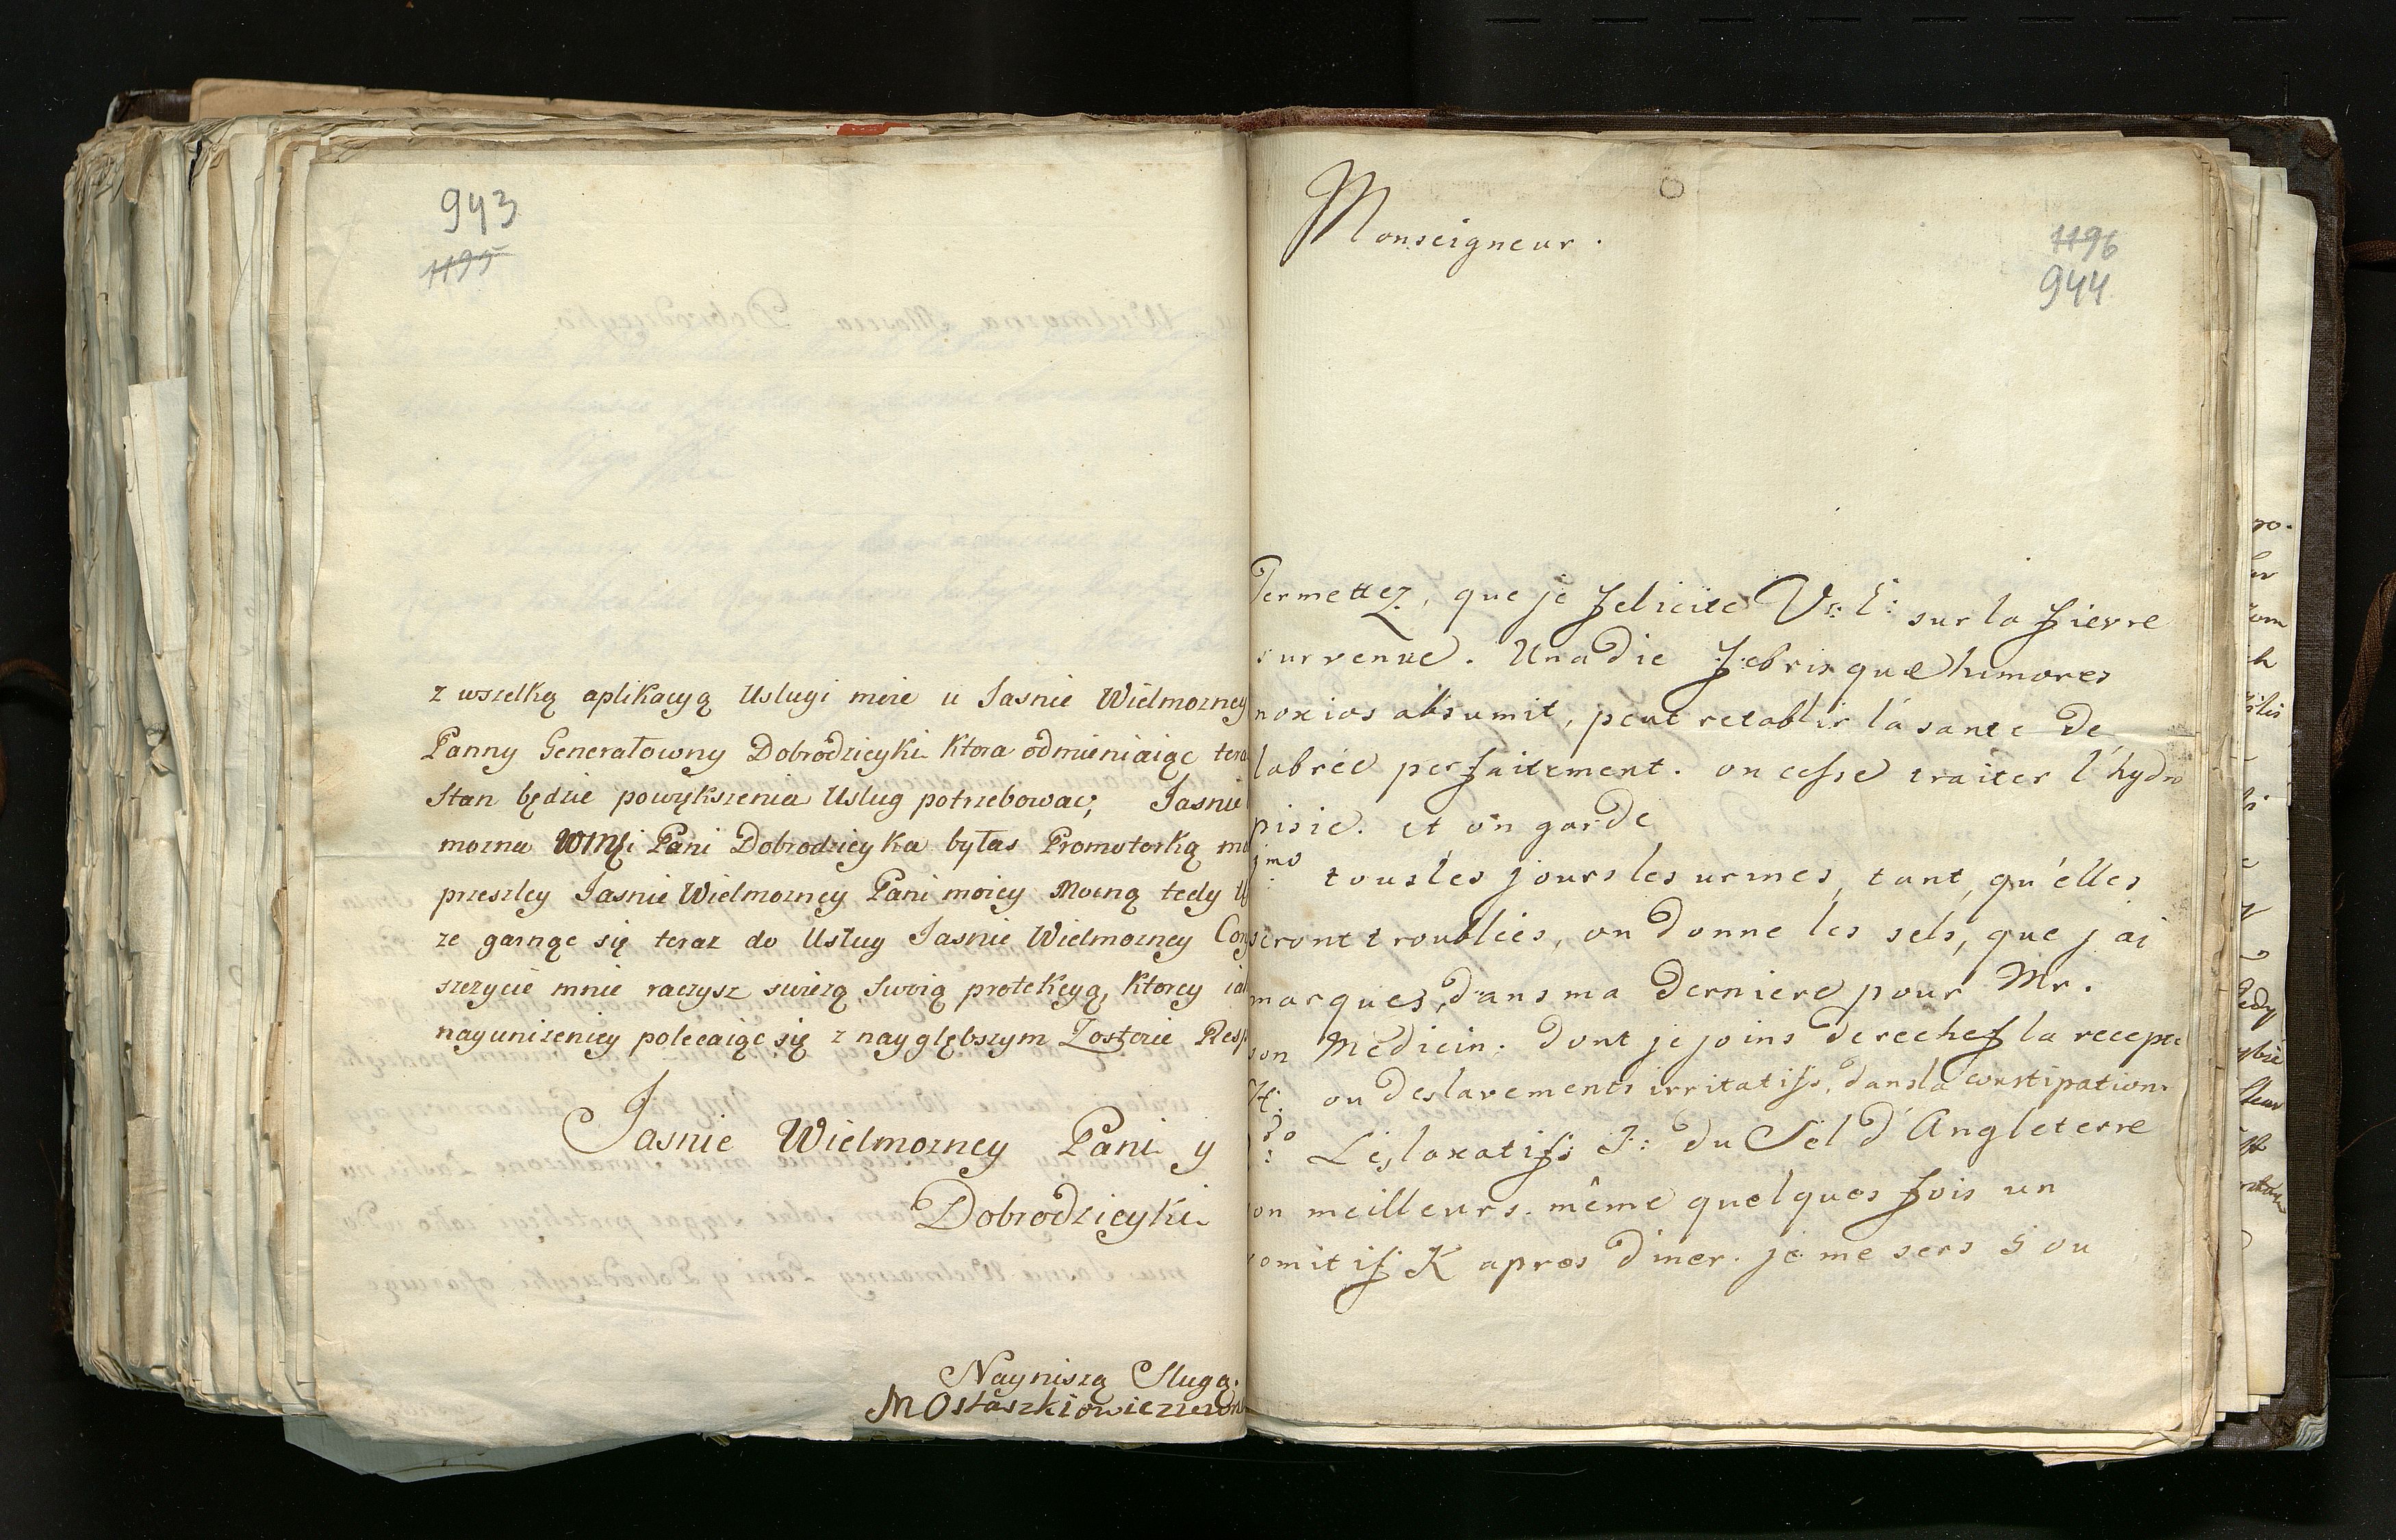 943
1195
z wszelką aplikacyą Usługi moie u Jasnie Wielmozney
Panny Generałowny Dobrodzieyki ktora odmieniaiąc tera
Stan będzie powyksżenia Usług potrzebować, Jasnie
mozna WMMci Pani Dobrodzieyka byłas Promotorką mo
przeszley Jasnie Wielmozney Pani moiey Mocną tedy
ze garnąc się teraz do Usług Jasnie Wielmozney Con
szczycie mnie raczysz swieżą swoią protekcyą, ktorey ia
nayunizeniey polecaiąc się z nayglębszym Zostaie Resp
Jasnie Wielmozney Pani y
Dobrodzieyki
Naynisza Sługa
MOstaszkiowiczowa
Monseigneur.
1196
944
Permettez, que je felicite Vr: E: sur la fievre
survenue. Una die febris quæ humores
noxios absumit, peut retablir la sante de
labrée perfaitement. on cesse traiter l'hydro
pisie. et on garde
jmo tous les jours les urines, tant, qu'elles
seront troublées, on donne les sels, que j'ai
marques, dans ma derniere pour Mr.
son Medicin: dont je joins derechef la recepte
H: ou des lavements irritatifs, dans la constipation.
2do Les laxatifs J: du Sel d'Angleterre
son meilleurs. même quelques fois un
vomitif K apres diner. je me sers 5 ou